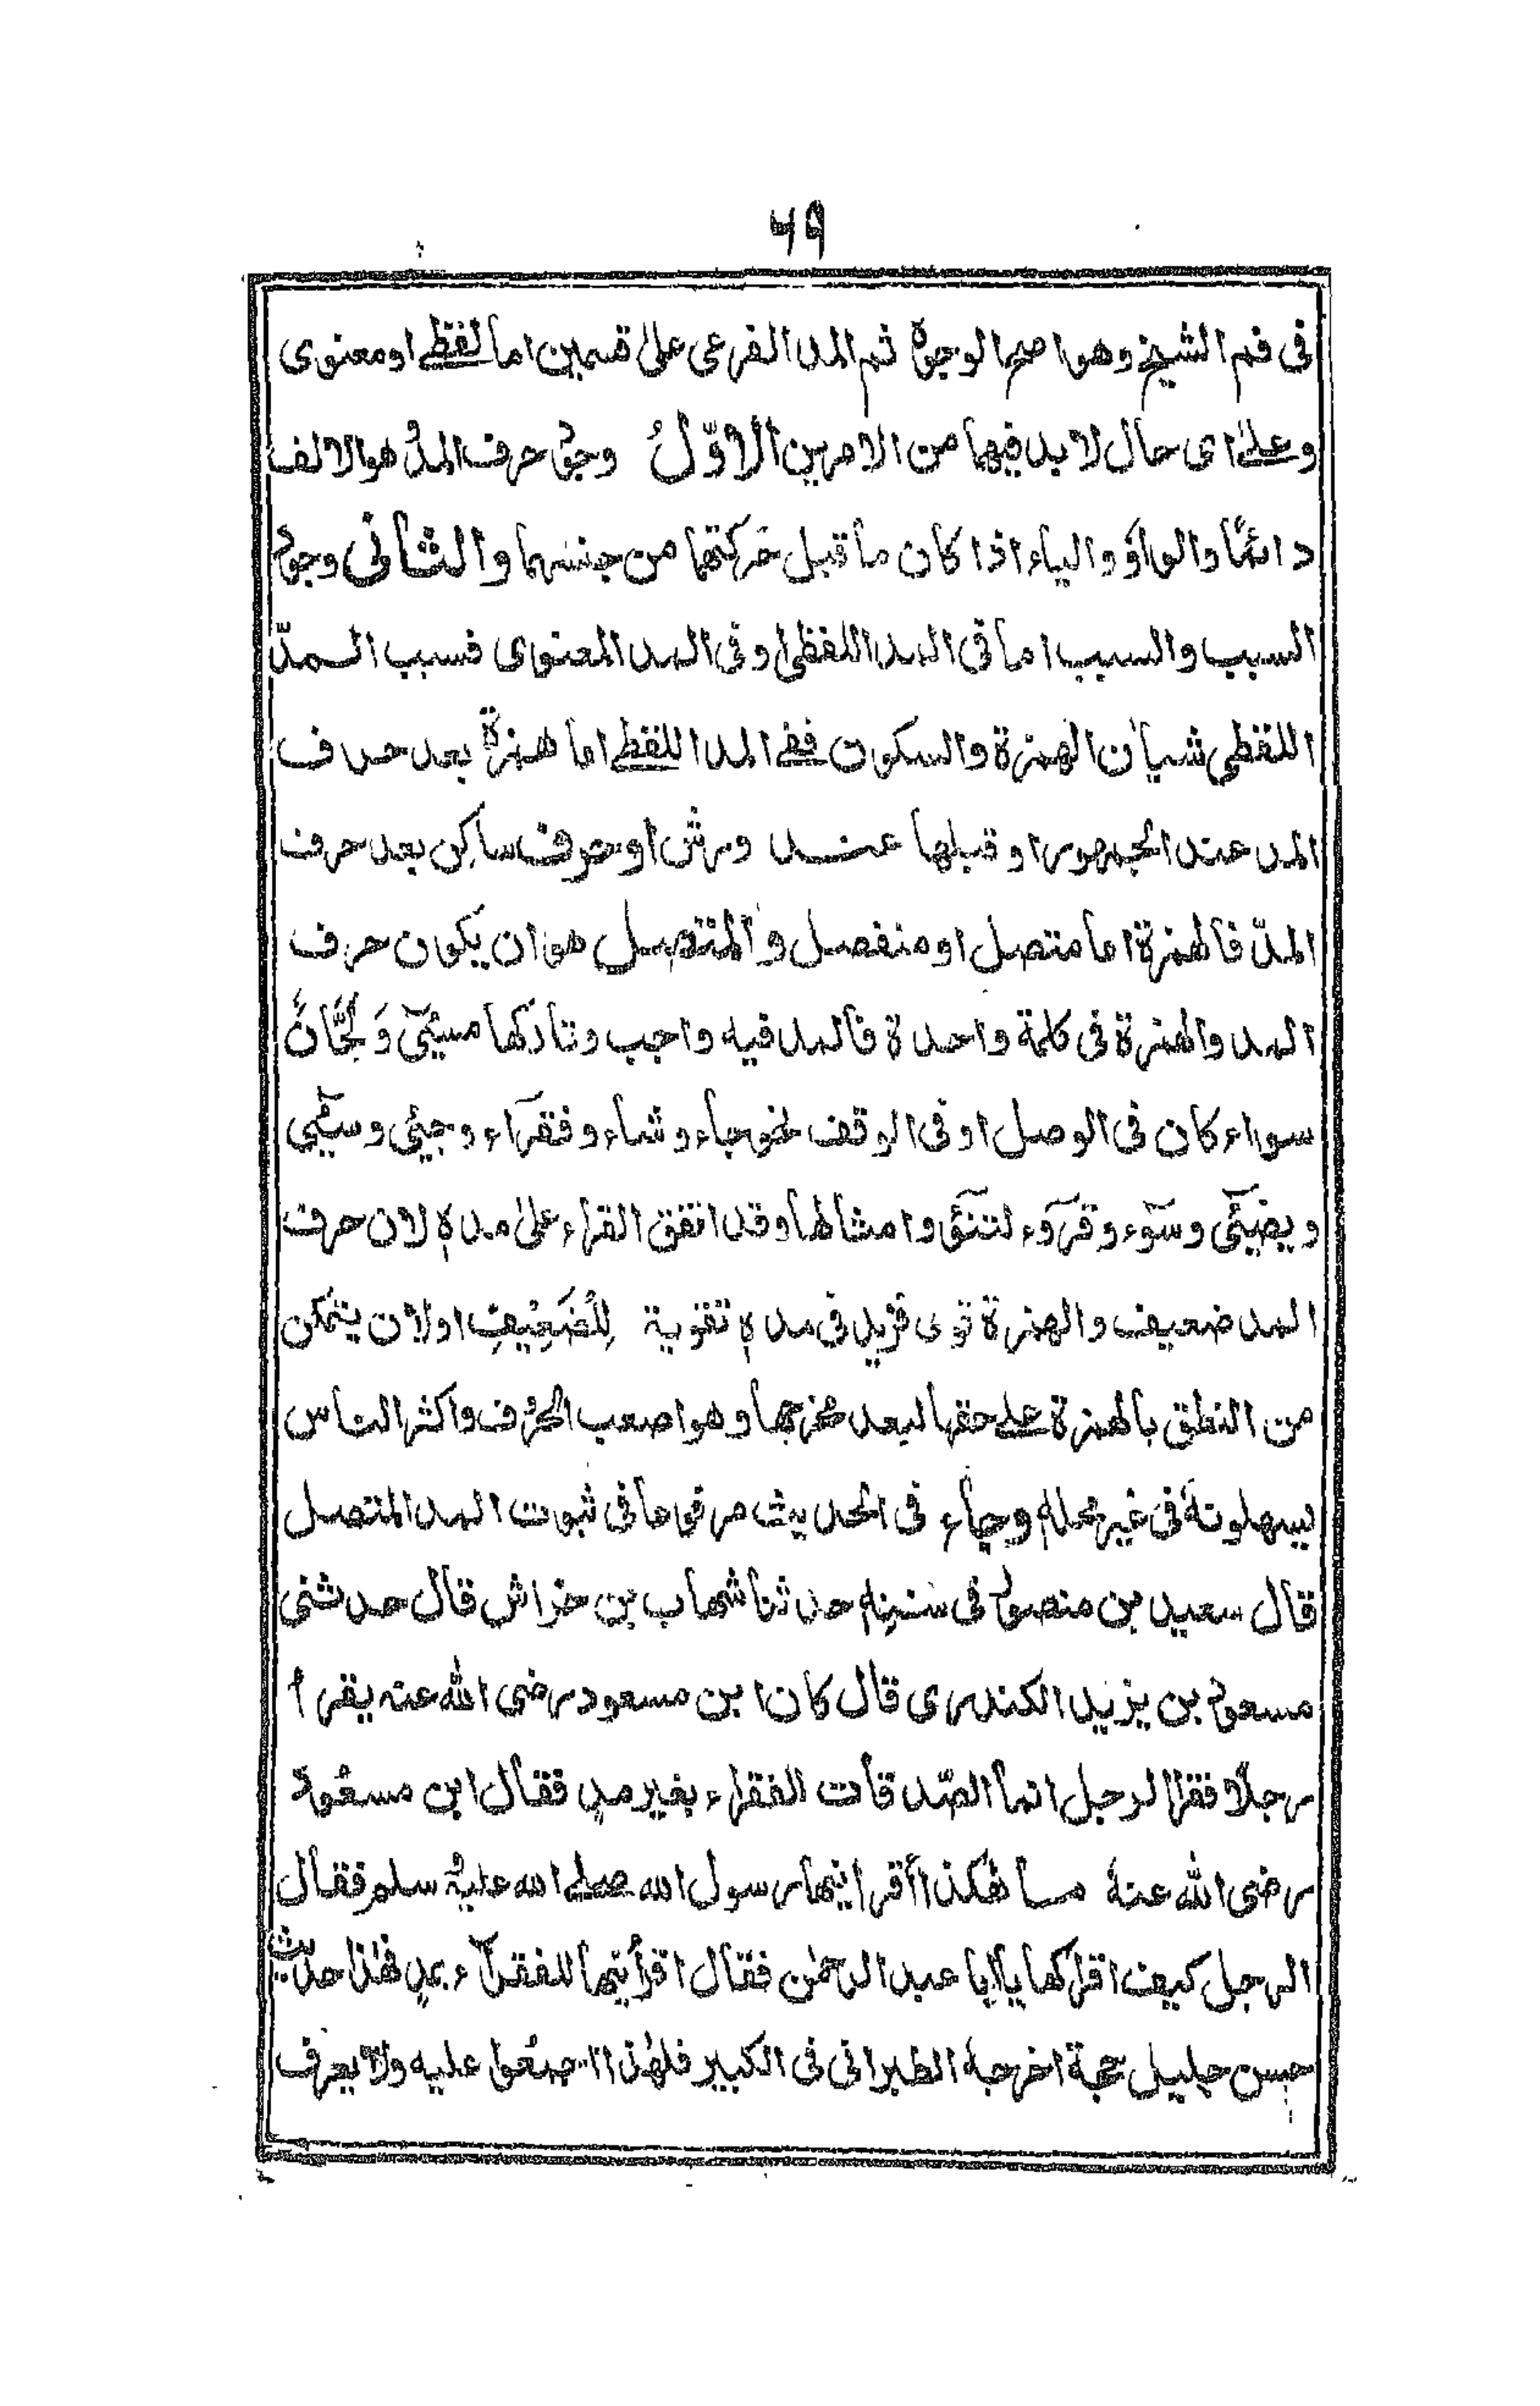 ٦٩
فى فم الشيخ وهو اصح الوجوه ثم المد الفرعى على قسمين اما لفظے او معنوى
وعلىٰ اى حال لا بد فيهما من الامرين الاوّلُ وجود حرف المدّ وهو الالف
دائمًا والواو والياء اذا كان ما قبل حركتهما من جنسهما والثانى وجود
السبب والسبب اما فى المد اللفظى او فى المد المعنوى فسبب المدّ
اللفظى شيأن الهمزة والسكون ففے المد اللفظے اما همزة بعد حرف
المد عند الجمهور او قبلها عند ورش او حرف ساكن بعد حرف
المدّ فالهمزة اما متصل او منفصل والمتصل هو ان يكون حرف
المد والهمزة فى كلمة واحدة فالمد فيه واجب وتاركها مسيئ وَلَحَّانٌ
سواء كان فى الوصل او فى الوقف نحو جاء وشاء وفقرآء وجيئ وسيٓئ
ويضيٓئ وسوٓء وقروٓء لتنوٓء وامثالها وقد اتفق القراء علىٰ مدهٖ لان حرف
المد ضعيف والهمزة قوى فزيد فى مدهٖ تقوية لِلضَّعِيْفِ او لان يتمكن
من النطق بالهمزة علے حقها لبعد مخرجها وهو اصعب الحروف واكثر الناس
يسهلونهٗ فى غير محلهٖ وجاء فى الحديث مرفوعا فى ثبوت المد المتصل
قال سعيد بن منصور فى سننهٖ حدثنا شهاب بن خراش قال حدثنى
مسعود بن يزيد الكندرى قال كان ابن مسعود رضى الله عنه يقرأ
رجلًا فقرأ الرجل انما الصّدقات الفقراء بغير مدٍ فقال ابن مسعود
رضى الله عنهٗ ما هٰكذا أقرانيها رسول الله صلے الله عليه وسلم فقال
الرجل كيف اقرأكها يا ابا عبد الرحمٰن فقال اقرأنيها للفقرآء بمدٍ فهٰذا حديث
حسن جليل حجة اخرجه الطبرانى فى الكبير فلهٰذا اجمعوا عليه ولا يعرف